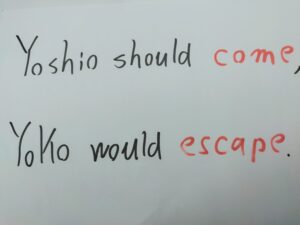 Yoshio should come,
Yoko would escape.